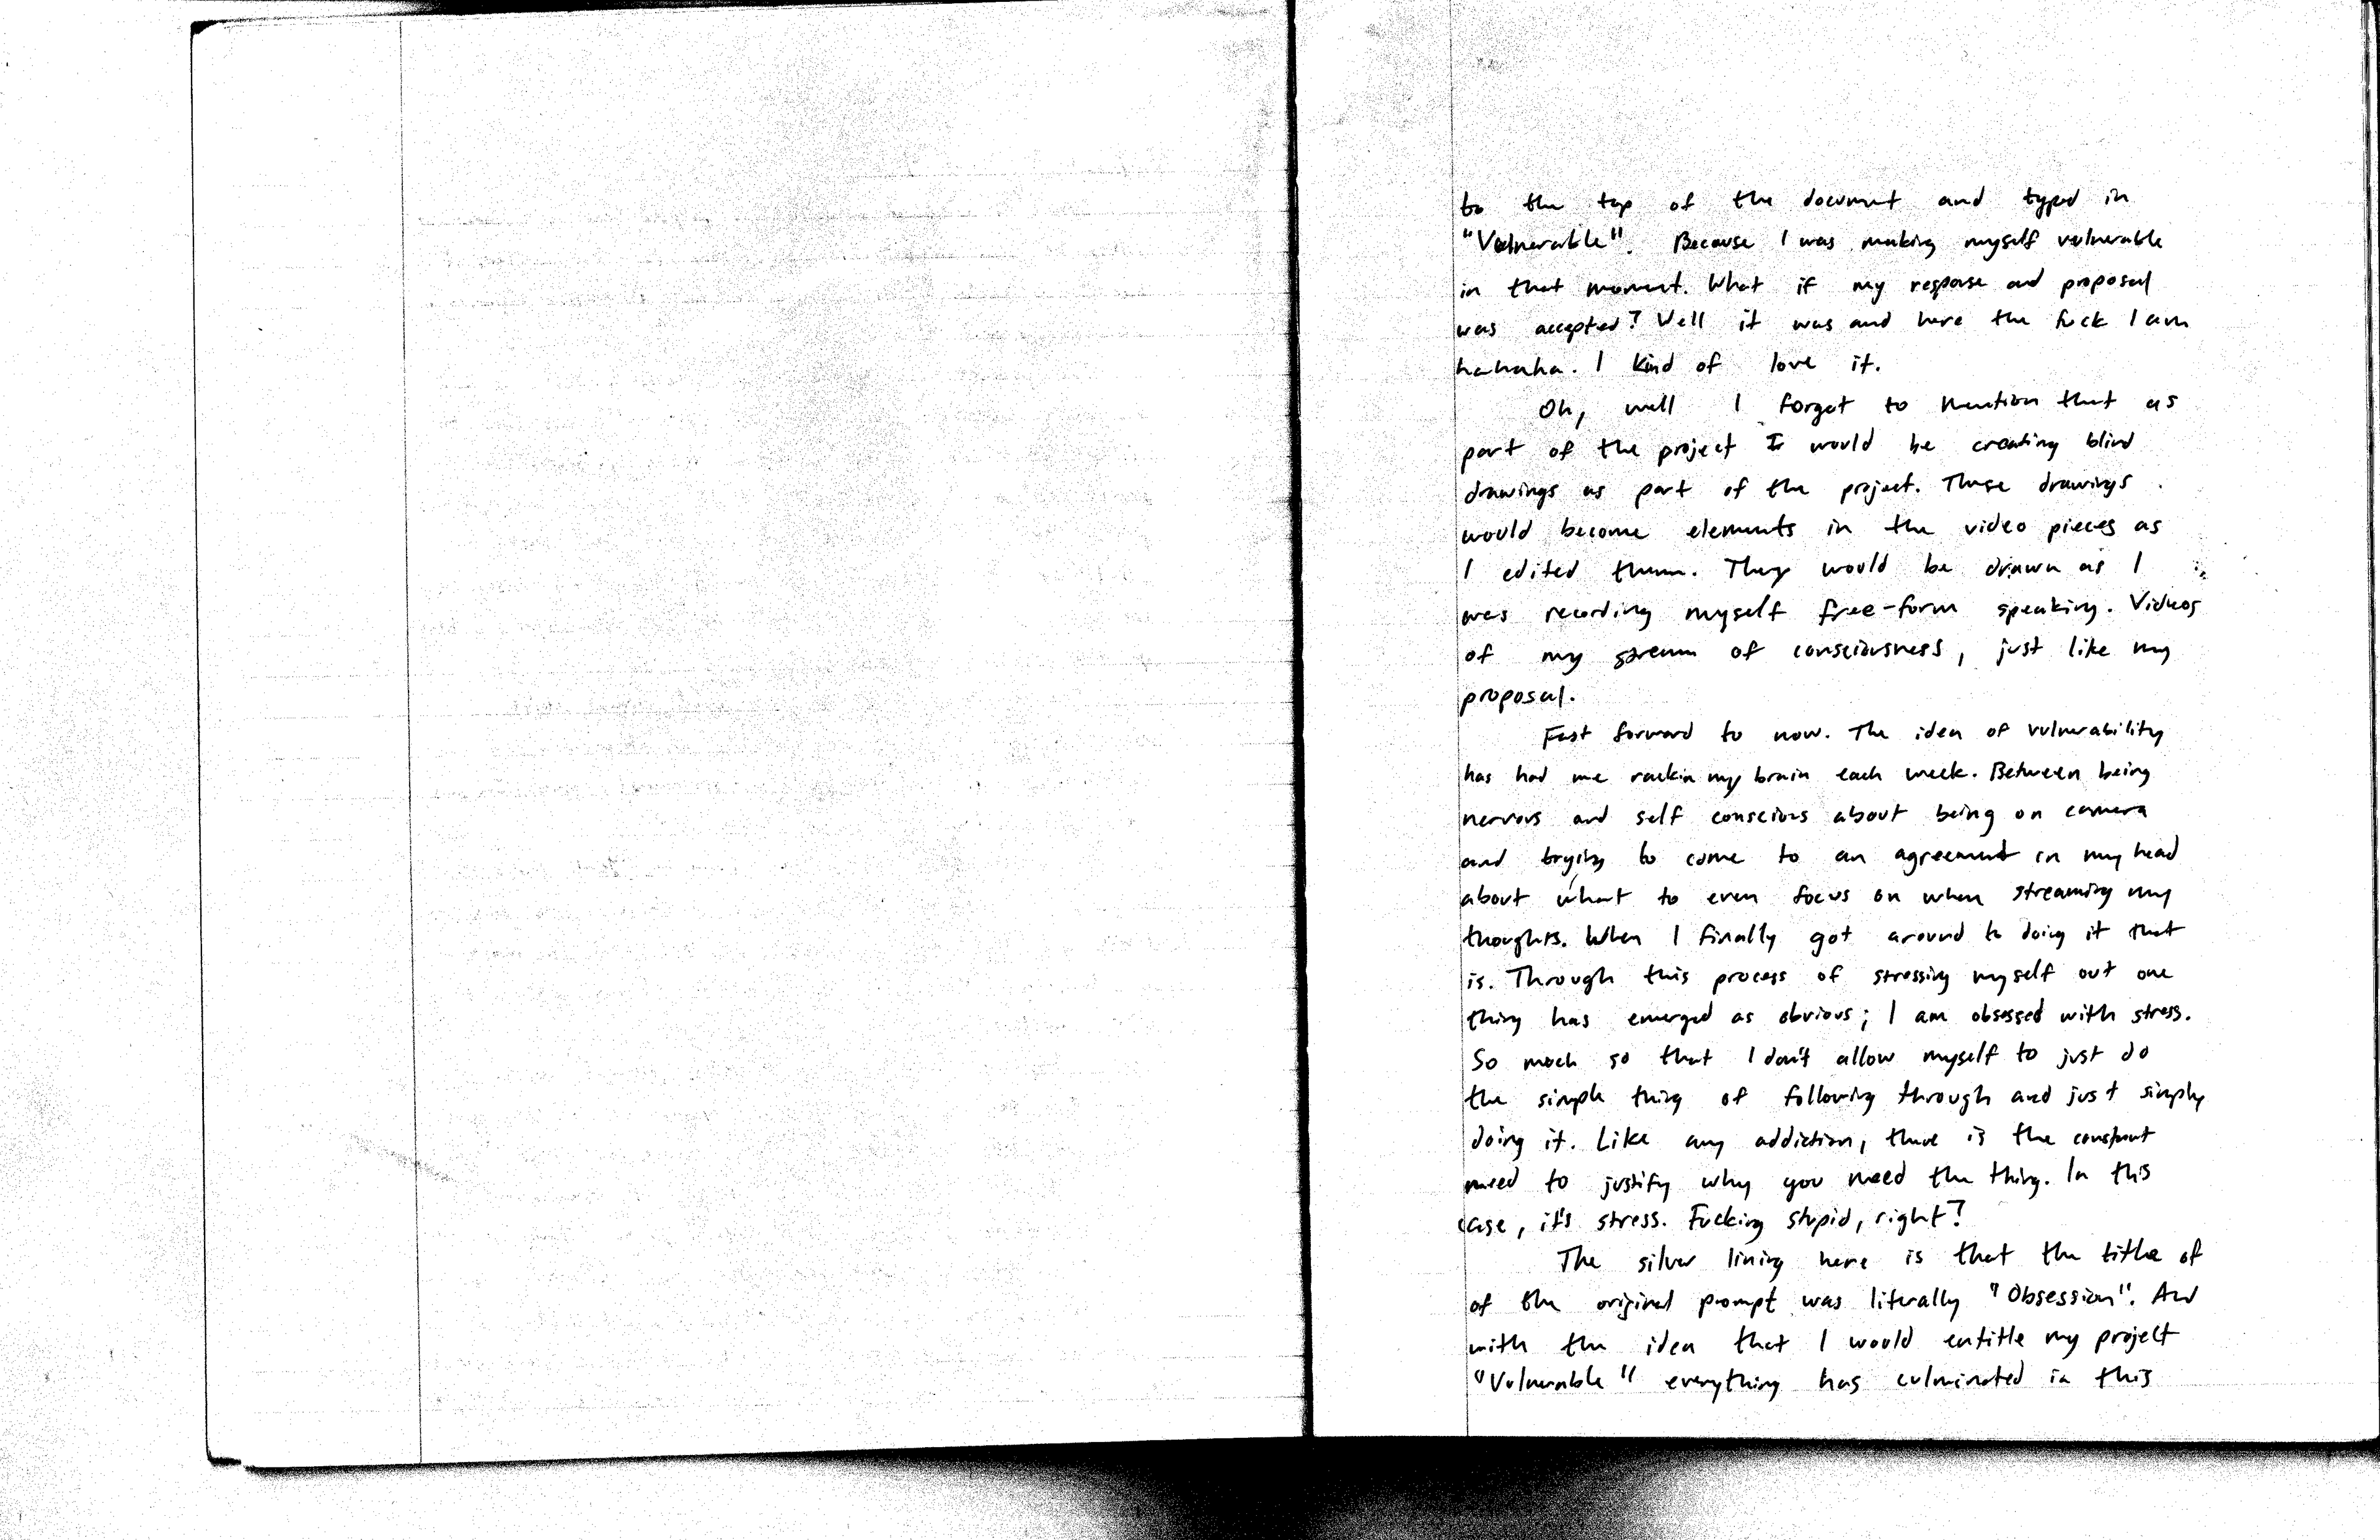 to the top of the document and typed in
"Vulnerable". Because I was making myself vulnerable
in that moment. What if my response and proposal
was accepted? Well it was and here the fuck I am
hahaha. I kind of love it.
Oh, well I forgot to mention that as
part of the project I would be creating blind
drawings as part of the project. These drawings
would become elements in the video pieces as
I edited them. They would be drawn as I
was recording myself free-form speaking. Videos
of my stream of consciousness, just like my
proposal.
Fast forward to now. The idea of vulnerability
has had me rackin my brain each week. Between being
nervous and self conscious about being on camera
and trying to come to an agreement in my head
about what to even focus on when streaming my
thoughts. When I finally got around to doing it that
is. Through this process of stressing myself out one
thing has emerged as obvious; I am obsessed with stress.
So much so that I don't allow myself to just do
the simple thing of following through and just simply
doing it. Like any addiction, there is the constant
need to justify why you need the thing. In this
case, it's stress. Fucking stupid, right?
The silver lining here is that the title of
of the original prompt was literally "Obsession". And
with the idea that I would entitle my project
"Vulnerable" everything has culminated in this